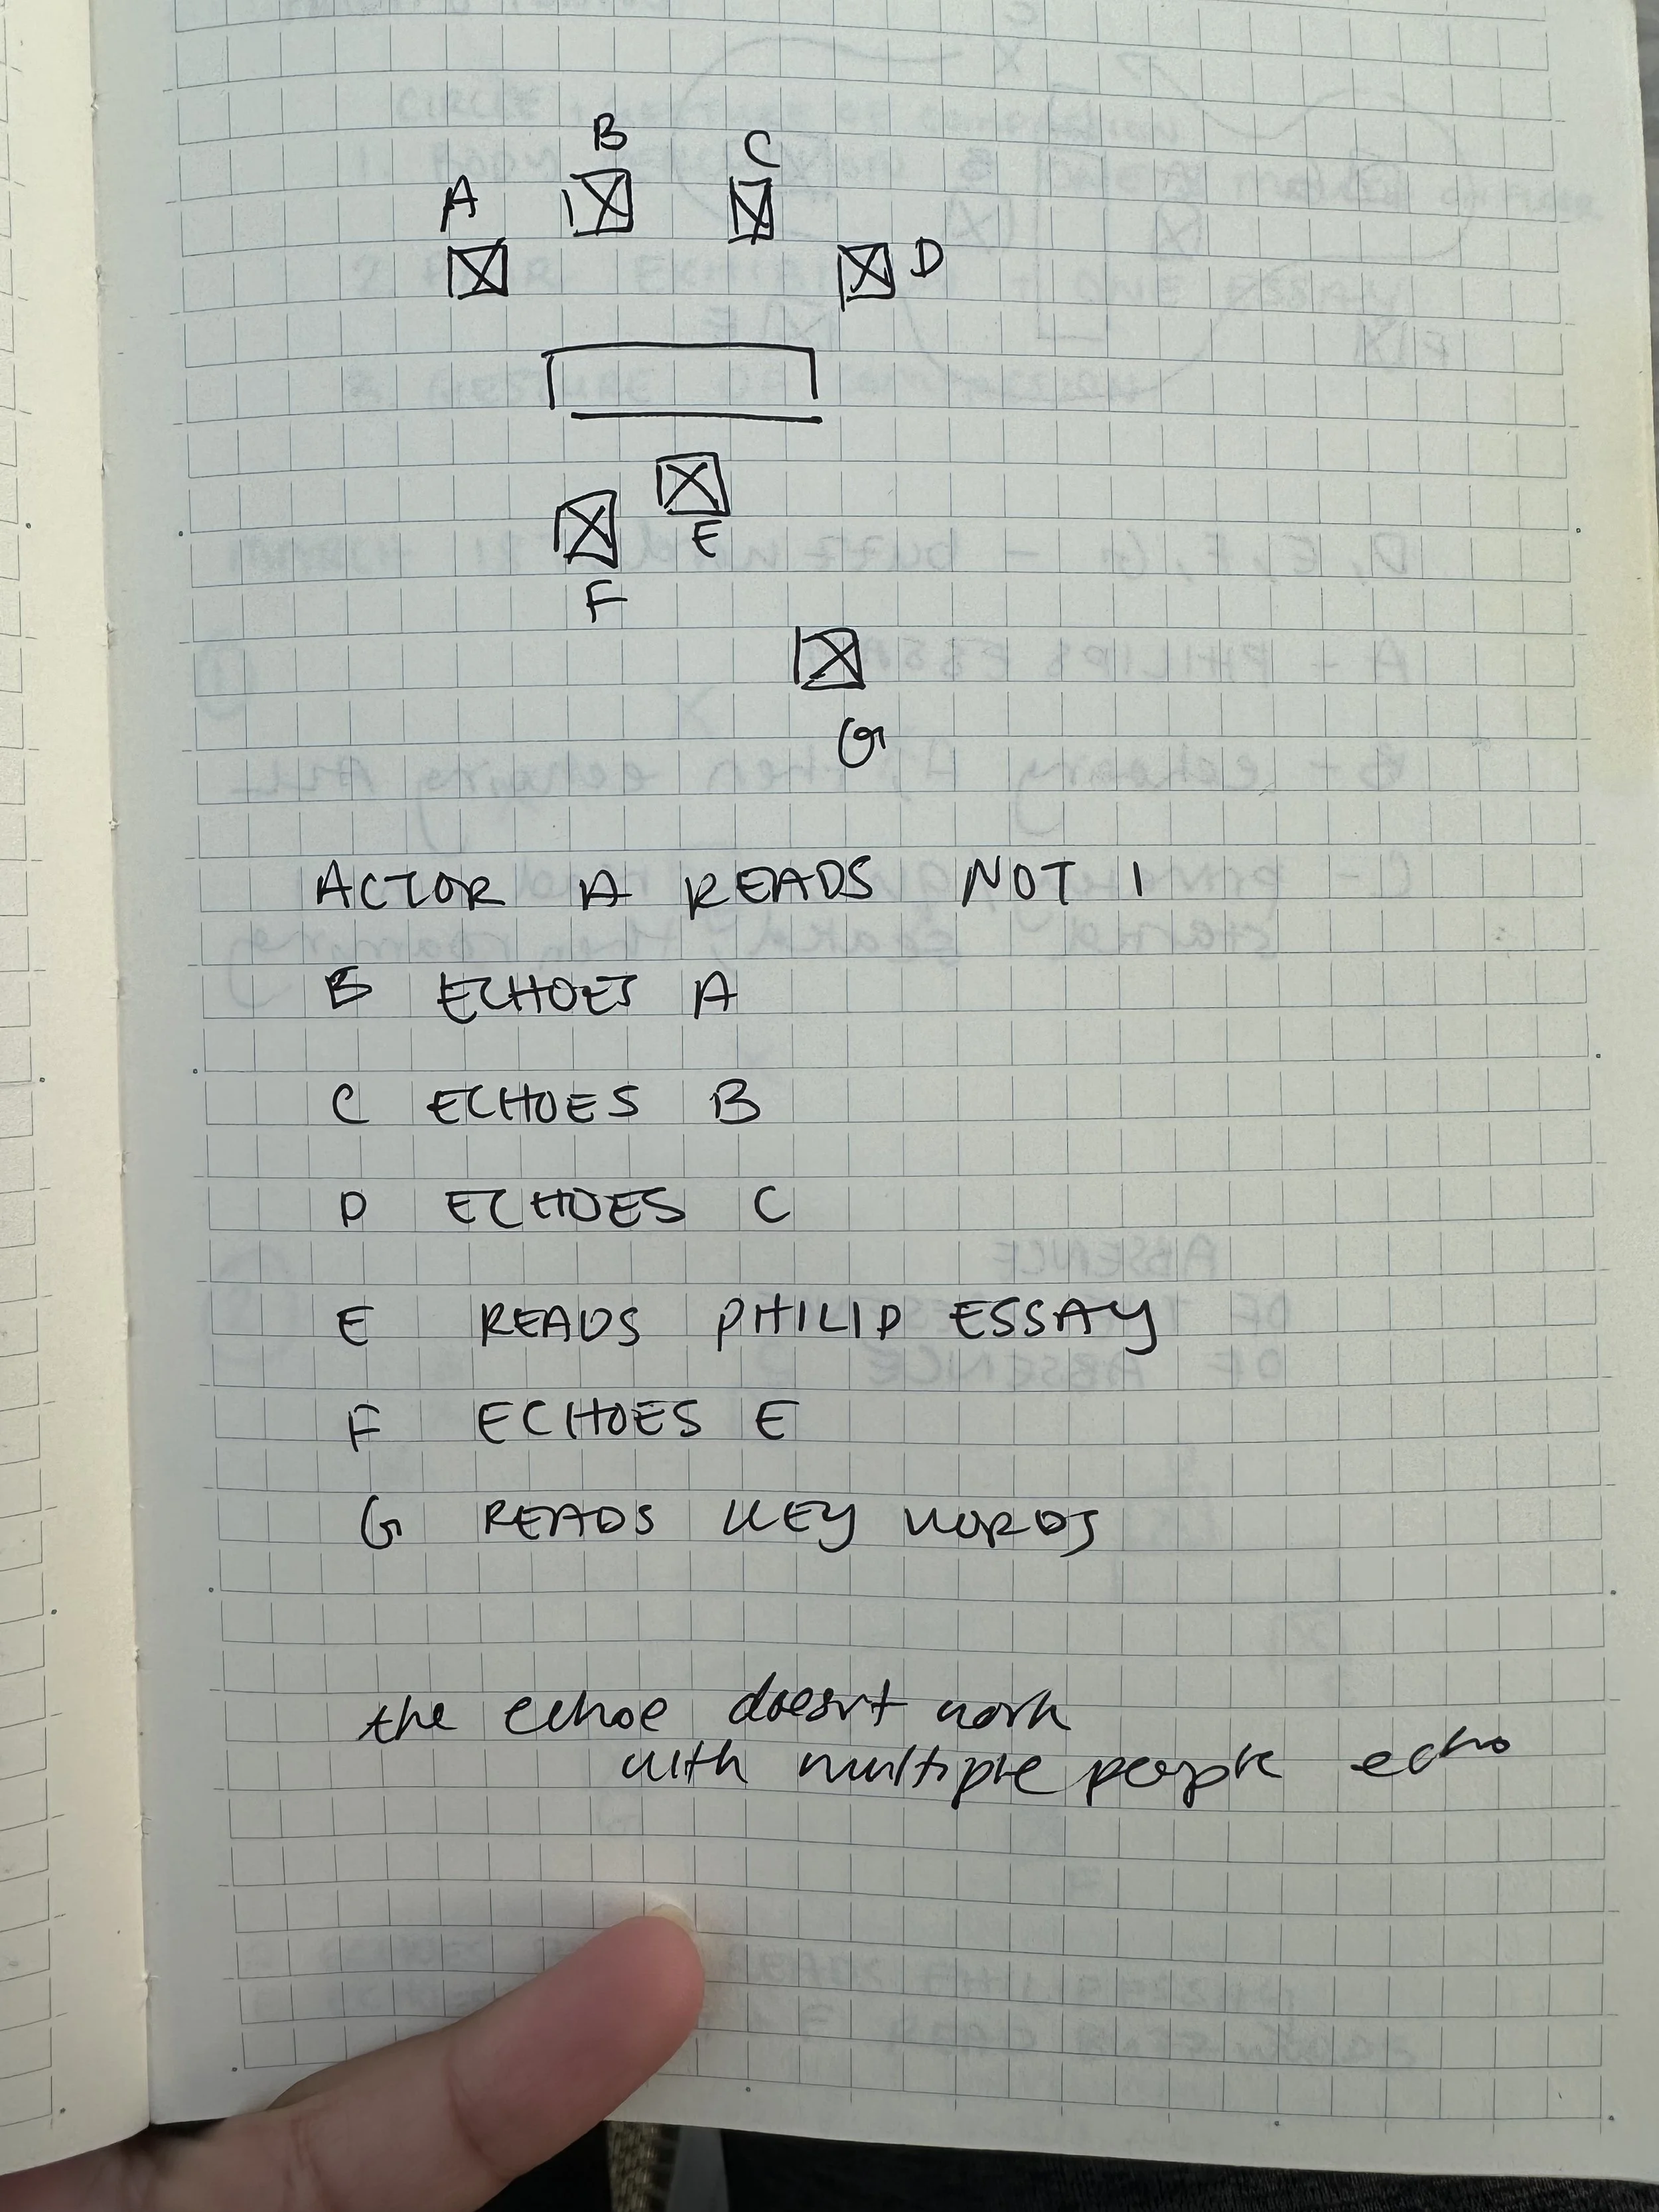 B
C
A
D
E
F
G
ACTOR A READS NOT I
B ECHOES A
C ECHOES B
D ECHOES C
E READS PHILIP ESSAY
F ECHOES E
G READS KEY WORDS
the echoe doesn't work
with multiple people echo